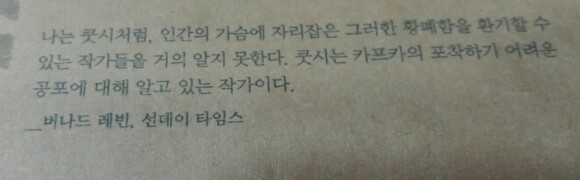 나는 쿳시처럼, 인간의 가슴에 자리잡은 그러한 황폐함을 환기할 수
있는 작가들을 거의 알지 못한다. 쿳시는 카프카의 포착하기 어려운
공포에 대해 알고 있는 작가이다.
__버나드 레빈, 선데이 타임스